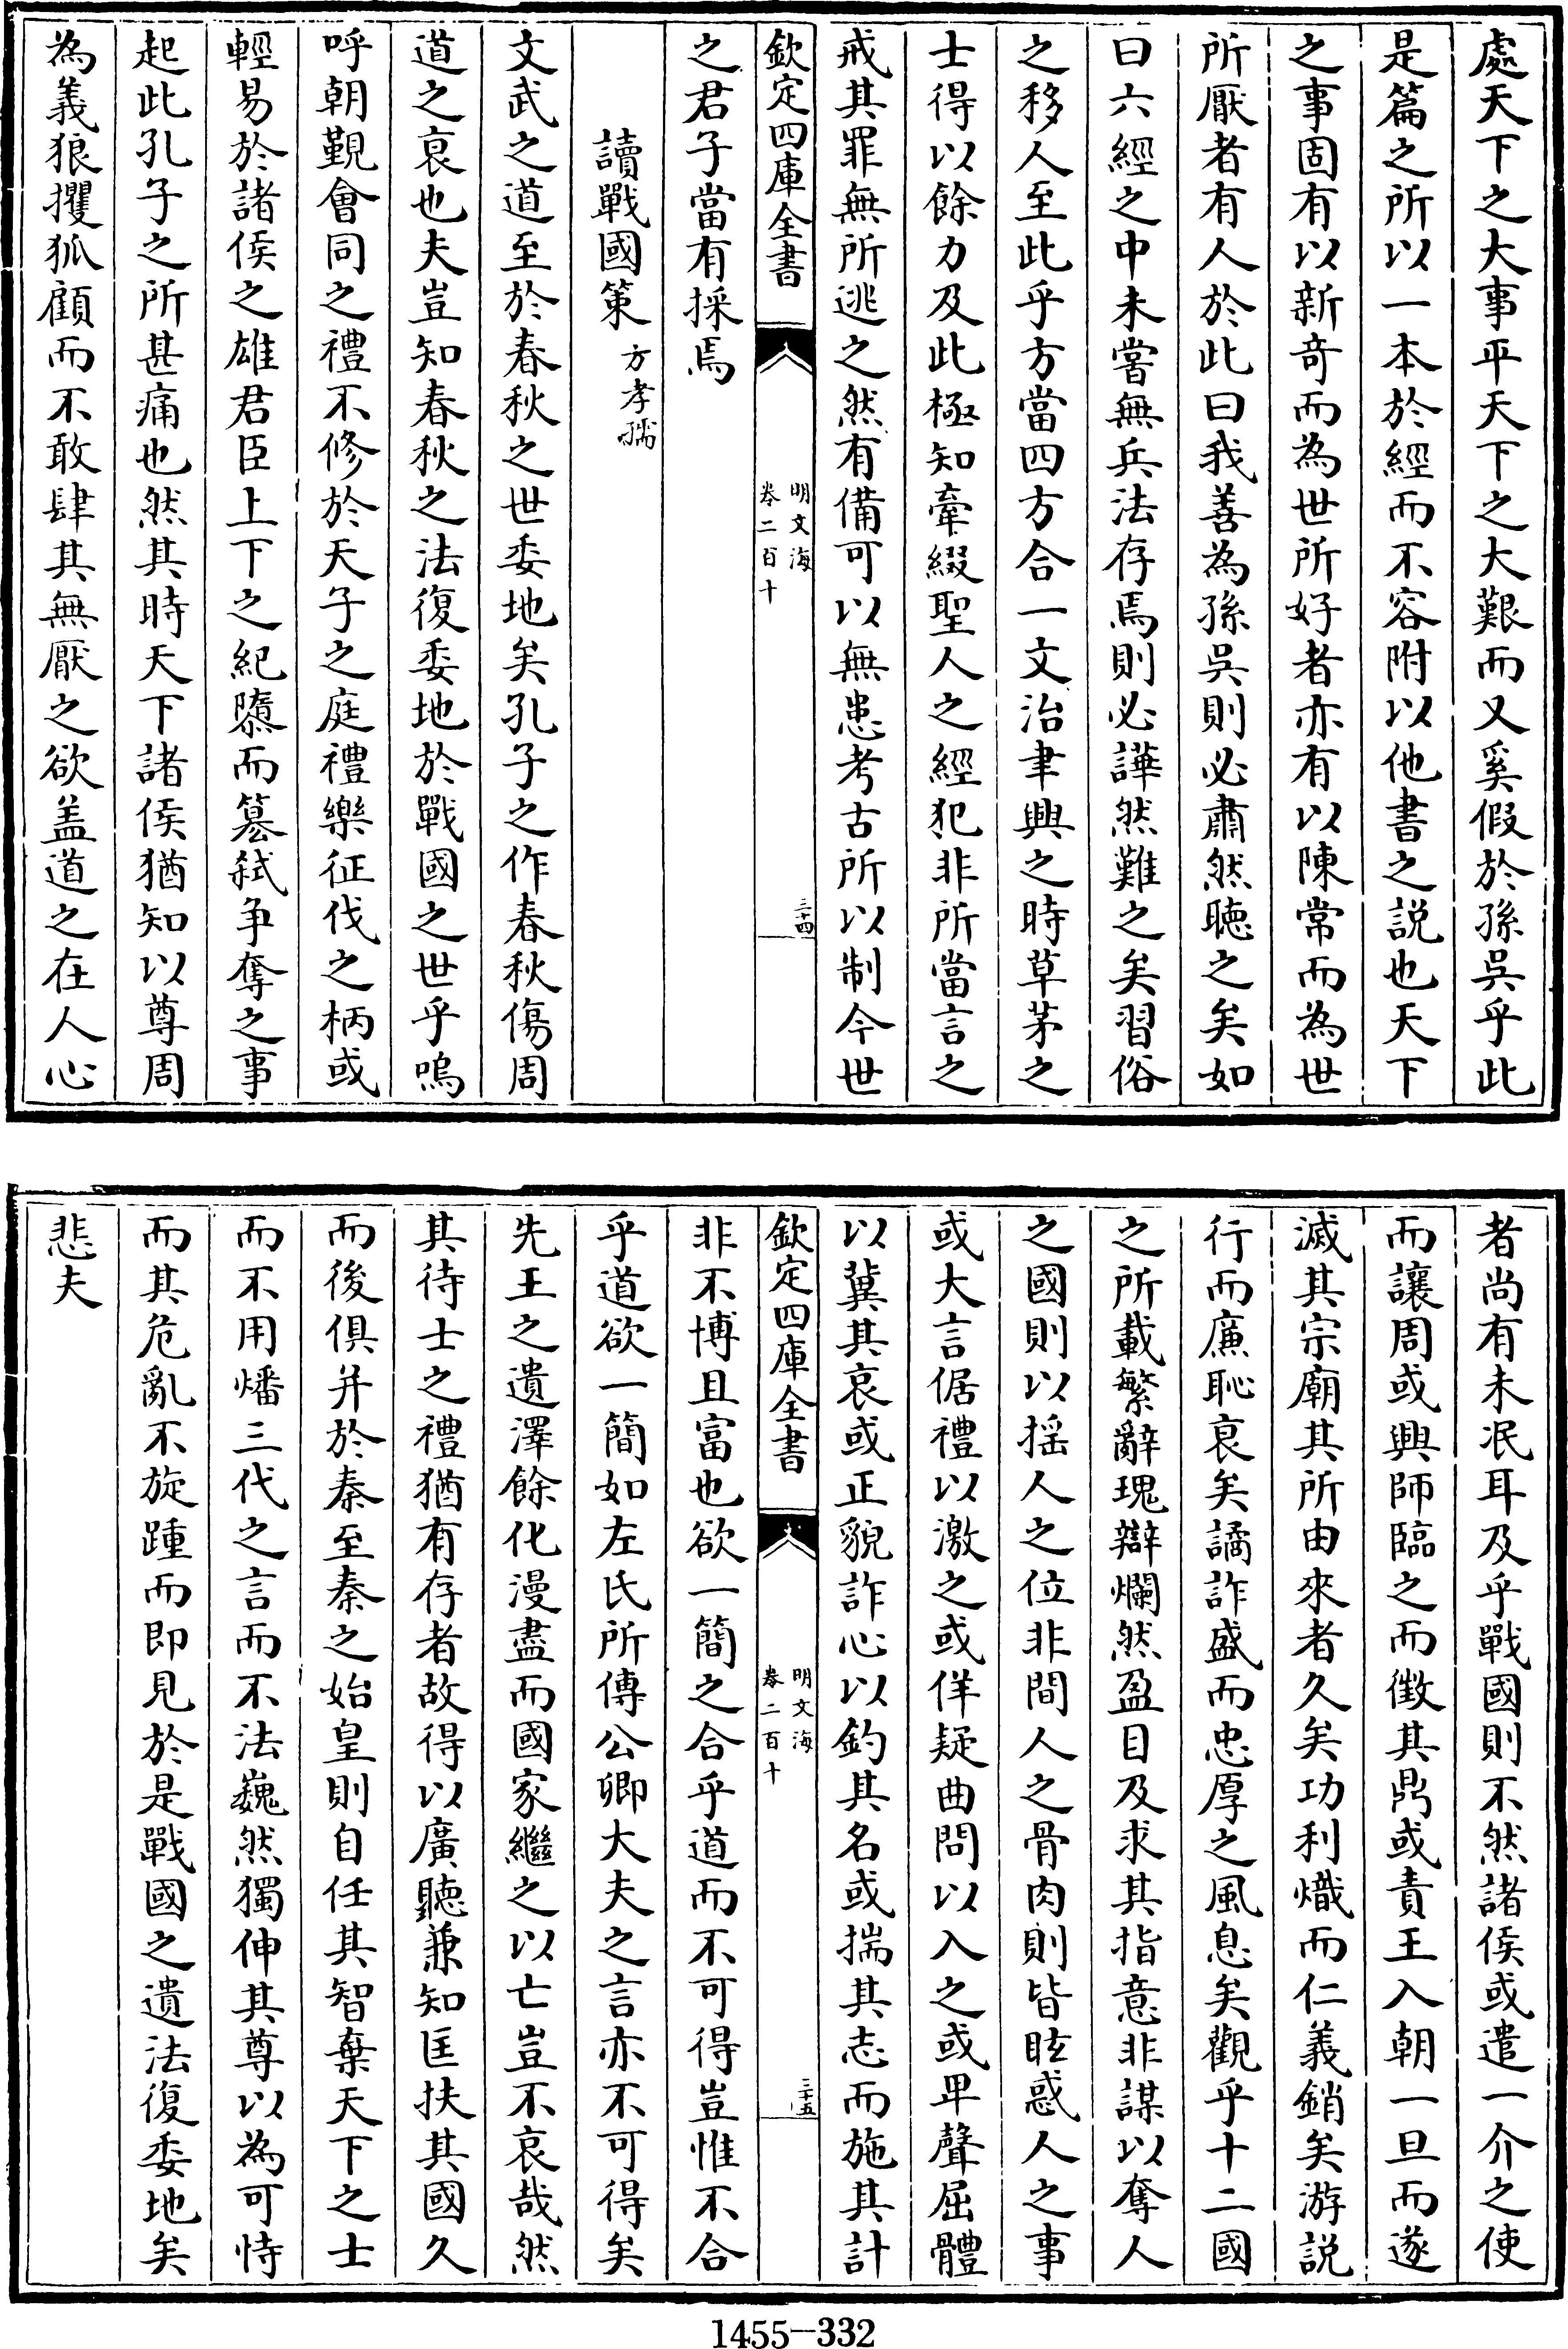 處天下之大事平天下之大艱而又奚假於孫吳乎此
是篇之所以一本於經而不容附以他書之説也天下
之事固有以新奇而為世所好者亦有以陳常而為世
所厭者有人於此曰我善為孫吳則必肅然聽之矣如
曰六經之中未嘗無兵法存焉則必譁然難之矣習俗
之移人至此乎方當四方合一文治聿興之時草茅之
士得以餘力及此極知牽綴聖人之經犯非所當言之
戒其罪無所逃之然有備可以無患考古所以制今世
欽定四庫全書
明文海
卷二百十
三十四
之君子當有採焉
讀戰國策 方孝孺
文武之道至於春秋之世委地矣孔子之作春秋傷周
道之衰也夫豈知春秋之法復委地於戰國之世乎嗚
呼朝覲會同之禮不修於天子之庭禮樂征伐之柄或
輕易於諸侯之雄君臣上下之紀隳而簒弑争奪之事
起此孔子之所甚痛也然其時天下諸侯猶知以尊周
為義狼攫狐顧而不敢肆其無厭之欲盖道之在人心
者尚有未泯耳及乎戰國則不然諸侯或遣一介之使
而讓周或興師臨之而徴其鼎或責王入朝一旦而遂
滅其宗廟其所由來者久矣功利熾而仁義銷矣游説
行而廉恥衰矣譎詐盛而忠厚之風息矣觀乎十二國
之所載繁辭瑰辯爛然盈目及求其指意非謀以奪人
之國則以揺人之位非間人之骨肉則皆眩惑人之事
或大言倨禮以激之或佯疑曲問以入之或卑聲屈體
以冀其哀或正貌詐心以釣其名或揣其志而施其計
欽定四庫全書
明文海
卷二百十
三十五
非不博且富也欲一簡之合乎道而不可得豈惟不合
乎道欲一簡如左氏所傳公卿大夫之言亦不可得矣
先王之遺澤餘化漫盡而國家繼之以亡豈不哀哉然
其待士之禮猶有存者故得以廣聽兼知匡扶其國久
而後俱并於秦至秦之始皇則自任其智棄天下之士
而不用燔三代之言而不法巍然獨伸其尊以為可恃
而其危亂不旋踵而即見於是戰國之遺法復委地矣
悲夫
1455-332